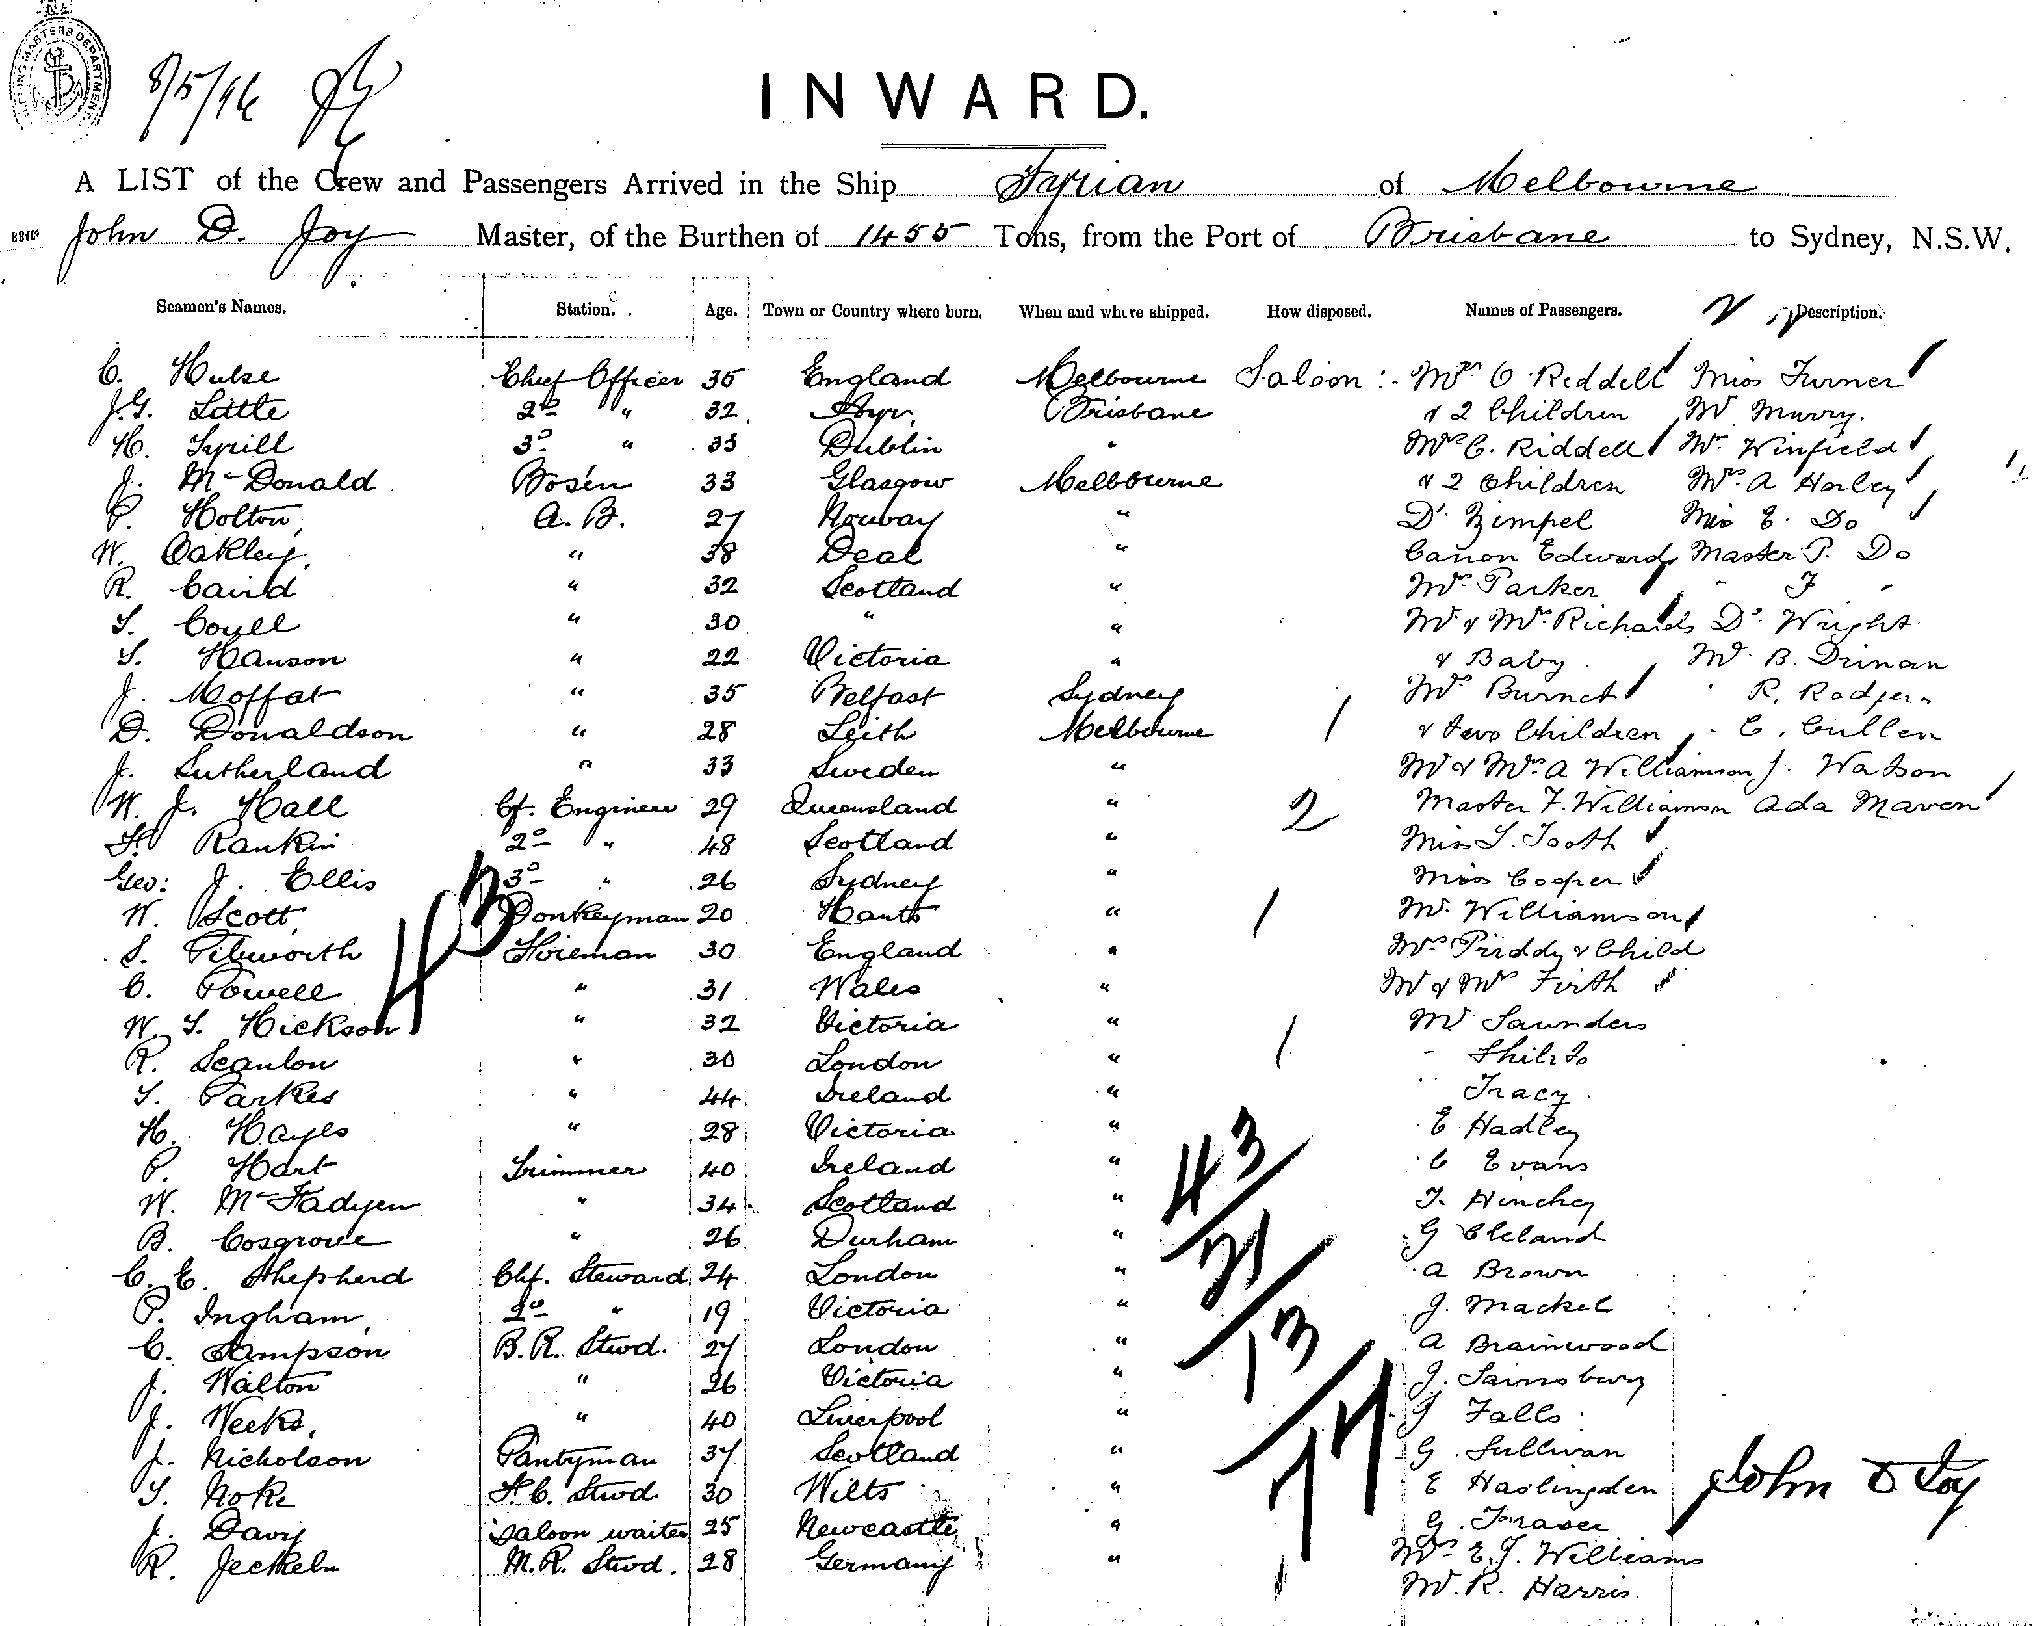 8/5/96
INWARD.
A LIST of the Crew and Passengers Arrived in the Ship Tyrian of Melbourne
John D. Joy Master, of the Burthen of 1455 Tons, from the Port of Brisbane to Sydney, N.S.W.
Seamen's Names. Station. Age. Town or Country where born. When and where shipped. How disposed. Names of Passengers. Description.
C. Hulse Chief Officer 35 England Melbourne Saloon :- Mrs C Riddell Miss Turner
J.G. Little 2nd " 32 Ayr Brisbane & 2 Children Mr Murry.
H. Tyrill 3d " 33 Dublin " Mrs C. Riddell Mr Winfield
J. McDonald Bosen 33 Glasgow Melbourne & 2 Children Mrs A Harley
P. Holton, A.B. 27 Norway " Dr Zimpel Miss E. Do
W. Oakley, " 38 Deal " Canon Edwards Master P. Do
R. Caird " 32 Scotland " Mrs Parker " F "
T. Coyll " 30 " " Mr & Mrs Richards Dr Wright
T. Hanson " 22 Victoria " & Baby Mr B. Dunan
J. Moffat " 35 Belfast Sydney Mrs Burnet R. Rodgers
D. Donaldson " 28 Leith Melbourne 1 & two Children C. Cullen
J. Sutherland " 33 Sweden " Mr & Mrs A Williamson J. Watson
W. J. Hall Cf. Engineer 29 Queensland " 2 Master F. Williamson Ada Maven
F. Rankin 2nd " 48 Scotland " Miss T. Tooth
Geo: J. Ellis 3d " 26 Sydney " Miss Cooper
W. Scott Donkeyman 20 Hants " 1 Mr. Williamson
S. Pibworth Fireman 30 England " Mrs Pirddy & Child
C. Powell " 31 Wales " Mr & Mrs Firth
W. T. Hickson " 32 Victoria " Mr Saunders
R. Scanlon " 30 London " 1 " Shilito
T. Parkes " 44 Ireland " " Tracy
H. Hayes " 28 Victoria " E Hadley
P. Hart Trimmer 40 Ireland " C Evans
W. McFadyen " 34 Scotland " T. Hinchey
B. Cosgrove " 26 Durham " G Cleland
C. E. Shepherd Chf. Steward 24 London " A Brown
P. Ingham, 2nd " 19 Victoria " J. Mackel
C. Sampson B.R. Stwd. 27 London " A Brainwood
J. Walton " 26 Victoria " J. Sainsbury
J. Weeks, " 40 Liverpool " J Falls
J. Nicholson Pantryman 37 Scotland " G. Sullivan
T. Noke F.C. Stwd. 30 Wilts " E Haslingden
J. Davy Saloon waiter 25 Newcastle " G. Fraser
R. Jeckeln M.R. Stwd. 28 Germany " Mrs E.J. Williams
Mr. R. Harris
43
43
21
13
77
John D Joy